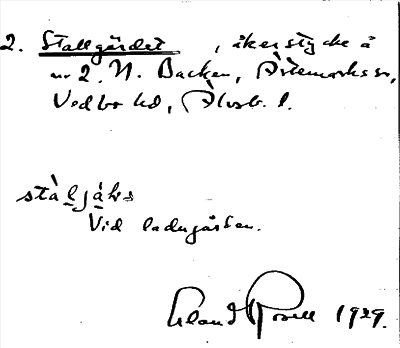 2. Stallgärdet, åkerstycke å
nr 2, N. Backen, Ärtemarks sn,
Vedbo hd, Älvsb. l.
stàl̲já̲ḷs
Vid ladugården.
Erland Rosell 1929.